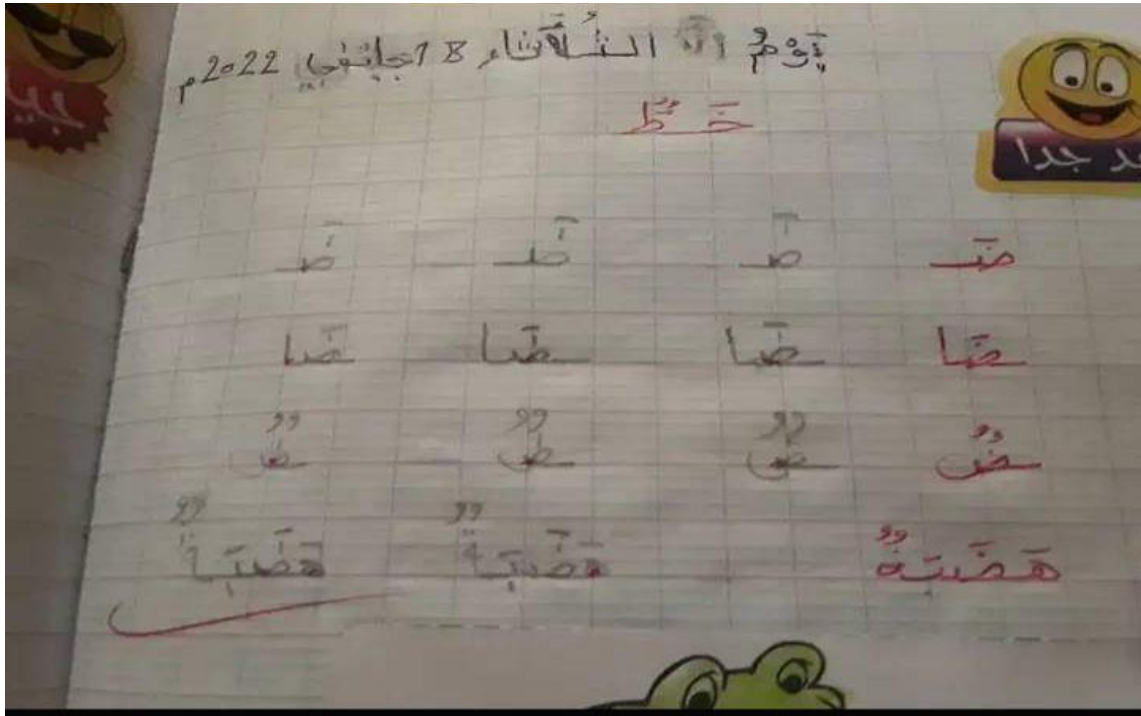 يَوْمُ الثُّلَاثَاء 18 جانفي 2022م
خَطٌّ
جدا
ضَـ ضَـ ضَـ ضَـ
ـضَا ـضَا ـضَا ـضَا
ـضٌ ـضٌ ـضٌ ـضٌ
هَضَبَةٌ هَضَبَةٌ هَضَبَةٌ